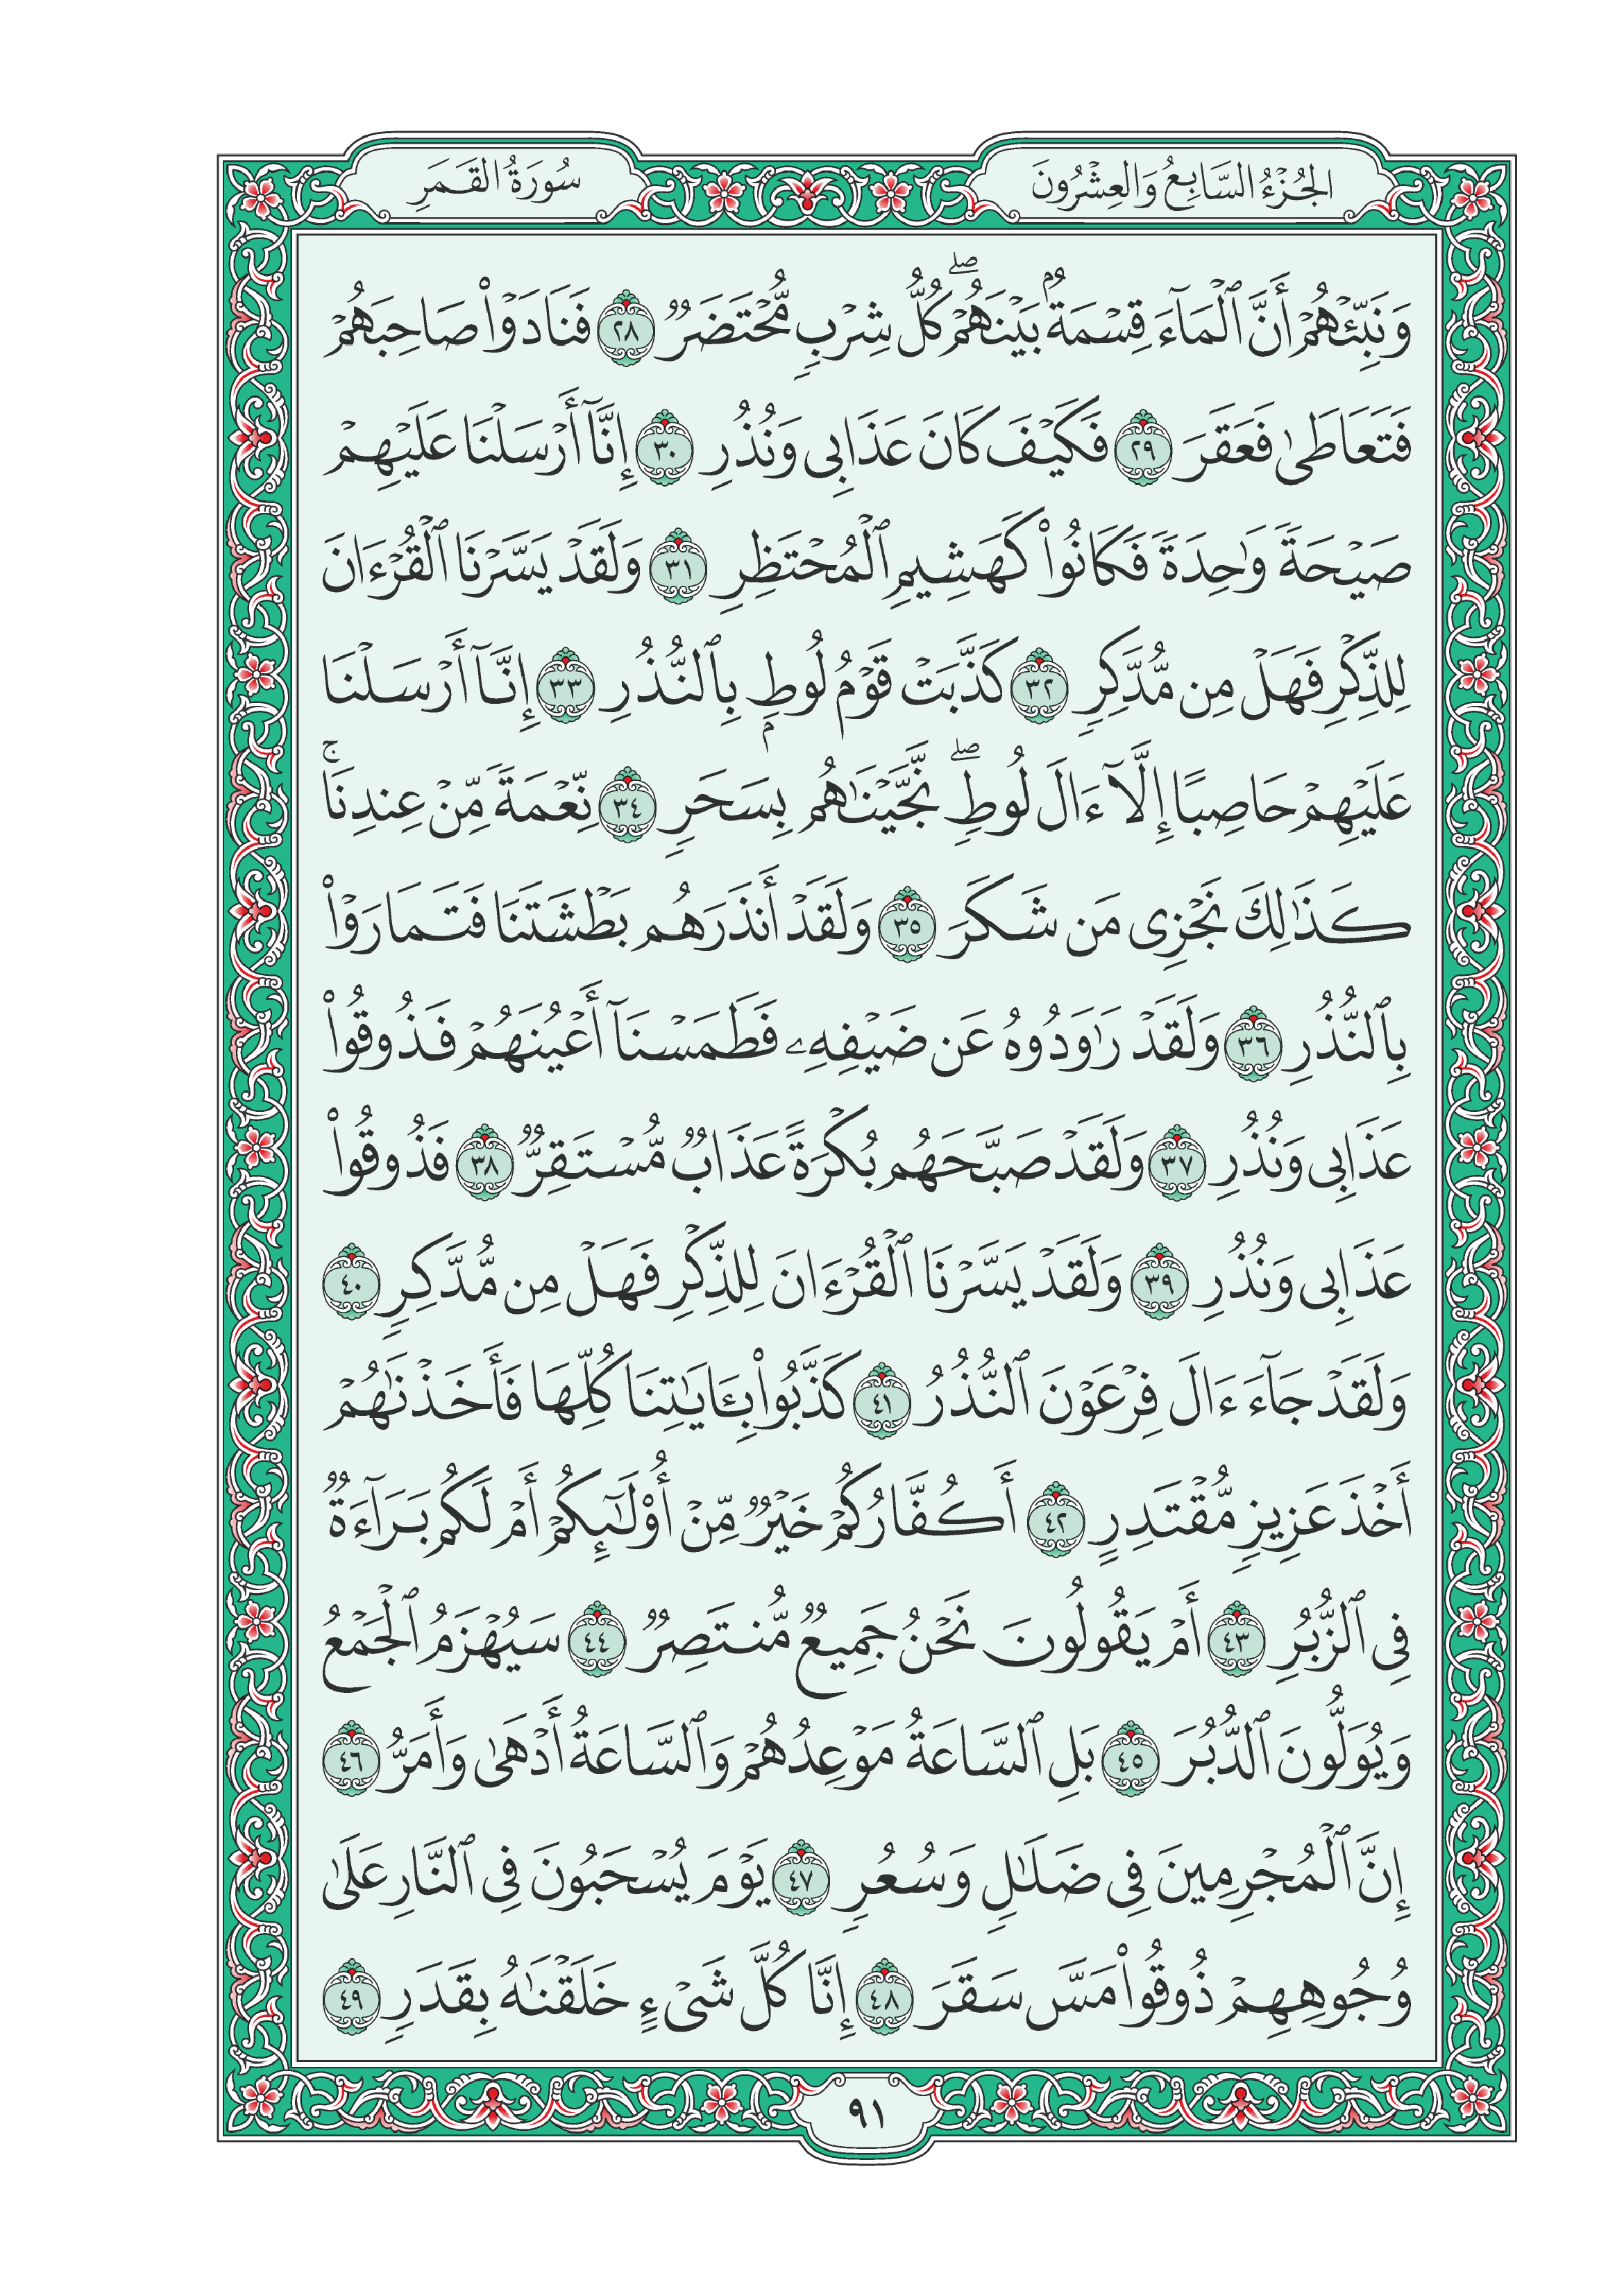 الجُزْءُ السَّابِعُ وَالعِشْرُونَ
سُورَةُ القَمَرِ
وَنَبِّئْهُمْ أَنَّ ٱلْمَآءَ قِسْمَةٌۢ بَيْنَهُمْۖ كُلُّ شِرْبٍ مُّحْتَضَرٌ ٢٨ فَنَادَوْا۟ صَاحِبَهُمْ
فَتَعَاطَىٰ فَعَقَرَ ٢٩ فَكَيْفَ كَانَ عَذَابِى وَنُذُرِ ٣٠ إِنَّآ أَرْسَلْنَا عَلَيْهِمْ
صَيْحَةً وَٰحِدَةً فَكَانُوا۟ كَهَشِيمِ ٱلْمُحْتَظِرِ ٣١ وَلَقَدْ يَسَّرْنَا ٱلْقُرْءَانَ
لِلذِّكْرِ فَهَلْ مِن مُّدَّكِرٍ ٣٢ كَذَّبَتْ قَوْمُ لُوطٍۭ بِٱلنُّذُرِ ٣٣ إِنَّآ أَرْسَلْنَا
عَلَيْهِمْ حَاصِبًا إِلَّآ ءَالَ لُوطٍۖ نَّجَّيْنَٰهُم بِسَحَرٍ ٣٤ نِّعْمَةً مِّنْ عِندِنَاۚ
كَذَٰلِكَ نَجْزِى مَن شَكَرَ ٣٥ وَلَقَدْ أَنذَرَهُم بَطْشَتَنَا فَتَمَارَوْا۟
بِٱلنُّذُرِ ٣٦ وَلَقَدْ رَٰوَدُوهُ عَن ضَيْفِهِۦ فَطَمَسْنَآ أَعْيُنَهُمْ فَذُوقُوا۟
عَذَابِى وَنُذُرِ ٣٧ وَلَقَدْ صَبَّحَهُم بُكْرَةً عَذَابٌ مُّسْتَقِرٌّ ٣٨ فَذُوقُوا۟
عَذَابِى وَنُذُرِ ٣٩ وَلَقَدْ يَسَّرْنَا ٱلْقُرْءَانَ لِلذِّكْرِ فَهَلْ مِن مُّدَّكِرٍ ٤٠
وَلَقَدْ جَآءَ ءَالَ فِرْعَوْنَ ٱلنُّذُرُ ٤١ كَذَّبُوا۟ بِـَٔايَٰتِنَا كُلِّهَا فَأَخَذْنَٰهُمْ
أَخْذَ عَزِيزٍ مُّقْتَدِرٍ ٤٢ أَكُفَّارُكُمْ خَيْرٌ مِّنْ أُو۟لَٰٓئِكُمْ أَمْ لَكُم بَرَآءَةٌ
فِى ٱلزُّبُرِ ٤٣ أَمْ يَقُولُونَ نَحْنُ جَمِيعٌ مُّنتَصِرٌ ٤٤ سَيُهْزَمُ ٱلْجَمْعُ
وَيُوَلُّونَ ٱلدُّبُرَ ٤٥ بَلِ ٱلسَّاعَةُ مَوْعِدُهُمْ وَٱلسَّاعَةُ أَدْهَىٰ وَأَمَرُّ ٤٦
إِنَّ ٱلْمُجْرِمِينَ فِى ضَلَٰلٍ وَسُعُرٍ ٤٧ يَوْمَ يُسْحَبُونَ فِى ٱلنَّارِ عَلَىٰ
وُجُوهِهِمْ ذُوقُوا۟ مَسَّ سَقَرَ ٤٨ إِنَّا كُلَّ شَىْءٍ خَلَقْنَٰهُ بِقَدَرٍ ٤٩
٩١